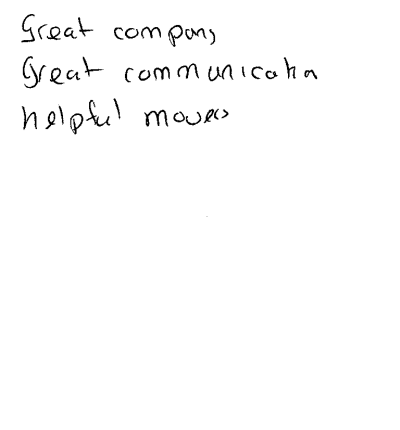 Great company
Great communication
helpful movers